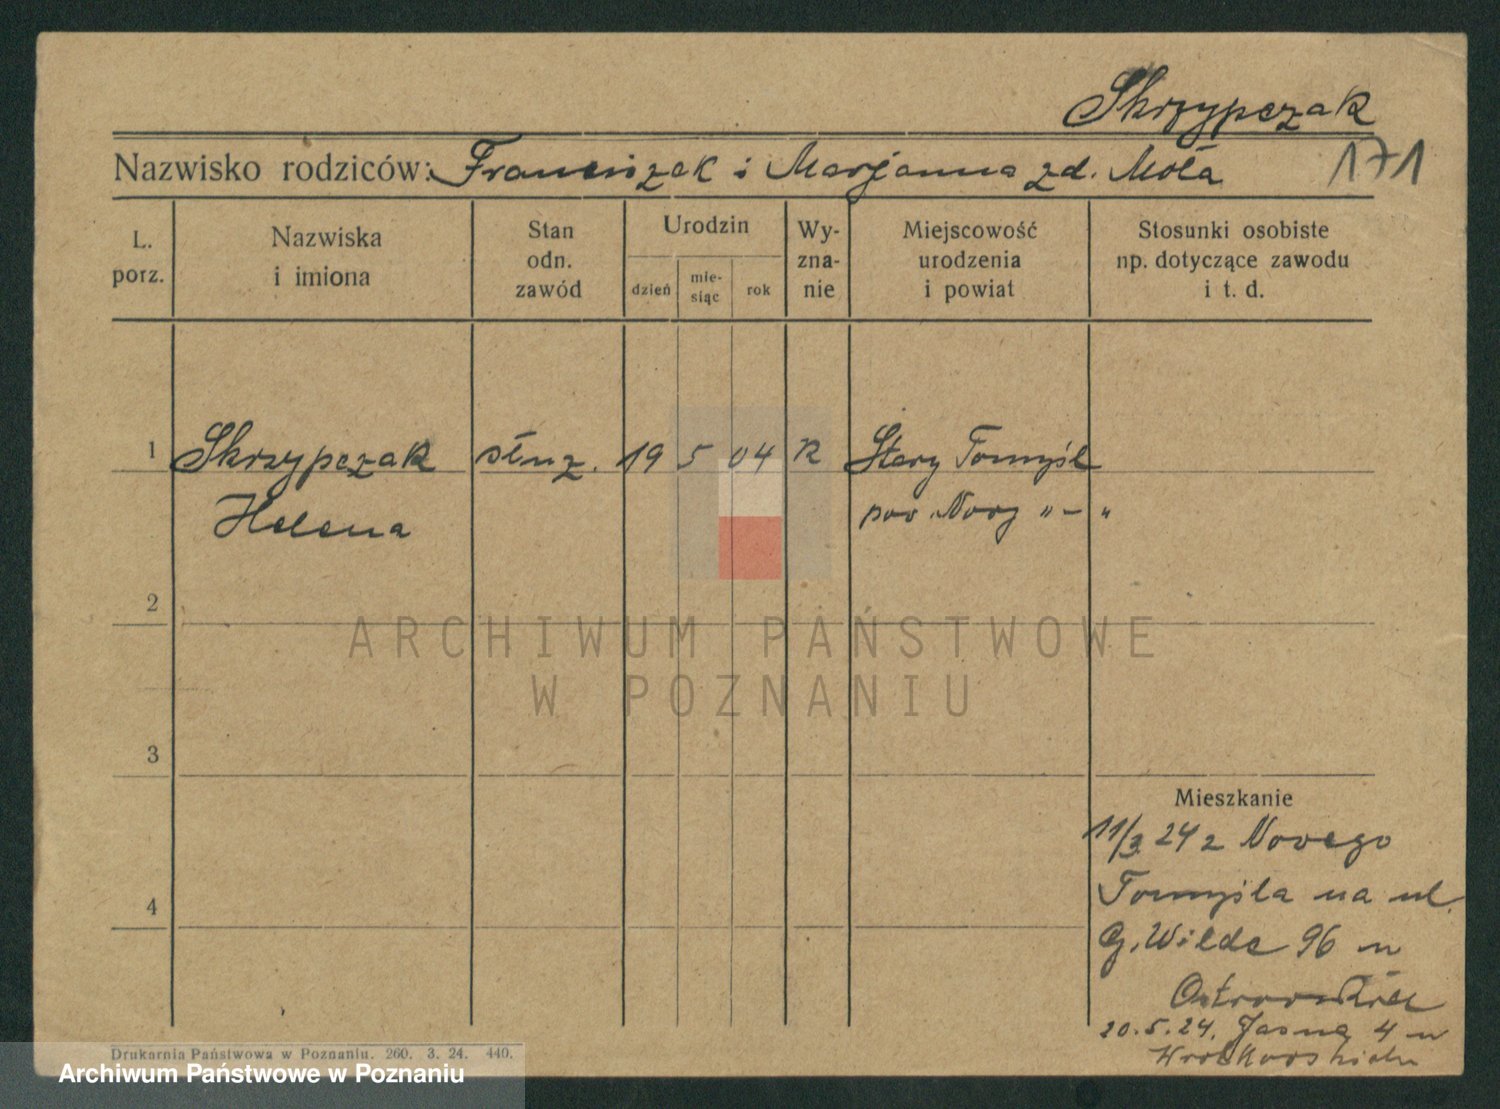 Skrzypczak
171
Nazwisko rodziców: Franciszek i Marjanna zd. Mola
L. porz.
Nazwiska i imiona
Stan odn. zawód
Urodzin
dzień
mie-
siąc
rok
Wy-
zna-
nie
Miejscowość urodzenia i powiat
Stosunki osobiste np. dotyczące zawodu i t. d.
1 Skrzypczak służ. 19 5 04 R Stary Tomyśl
Helena pow Nowy " - "
2
3
4
Mieszkanie
11/3 24 z Nowego
Tomyśla na ul.
G. Wilde 96 u
20.5.24. Jasna 4 u
Drukarnia Państwowa w Poznaniu. 260. 3. 24. 440.
ARCHIWUM PAŃSTWOWE
W POZNANIU
Archiwum Państwowe w Poznaniu